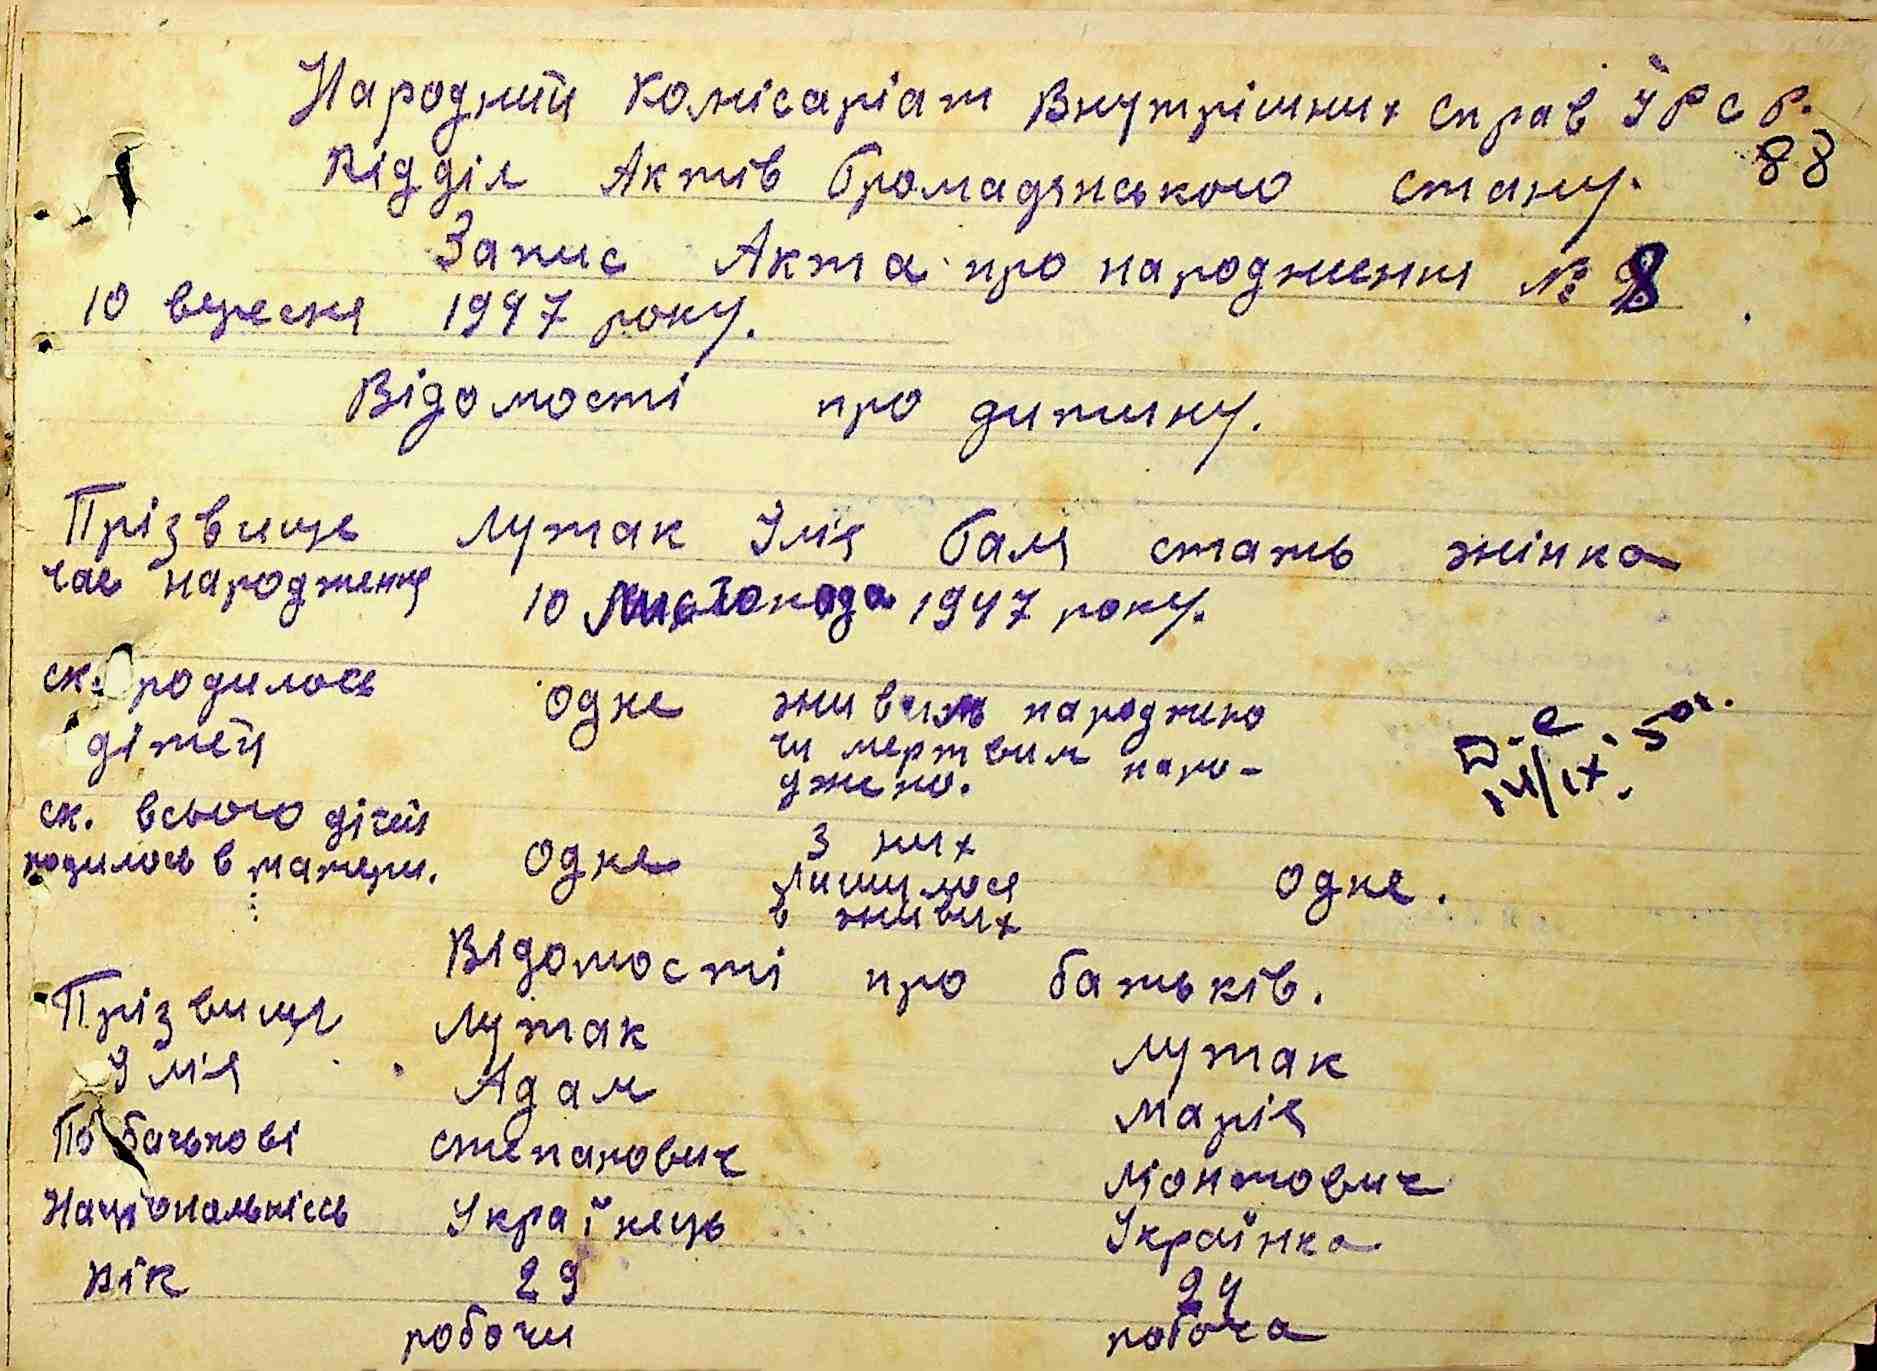 Народний Комісаріат Внутрішних справ УРСР.
Відділ Актів Громадянського стану. 88
Запис Акта про народження № 8
10 вересня 1947 року.
Відомості про дитину.
Прізвище Лутак Імія Галя стать жінка
час народження 10 Листопода 1947 року.
ск. родилось одне живим народжено
дітей чи мертвим наро-
джено.
14/IX. 50г.
ск. всього дітей одне З них одне.
родилось в матери. лишилося
в живих
Відомості про батьків.
Прізвище Лутак Лутак
Імія Адам Марія
По батькові степанович
Національнісь Українець Українка
вік 29 24
робочи робоча